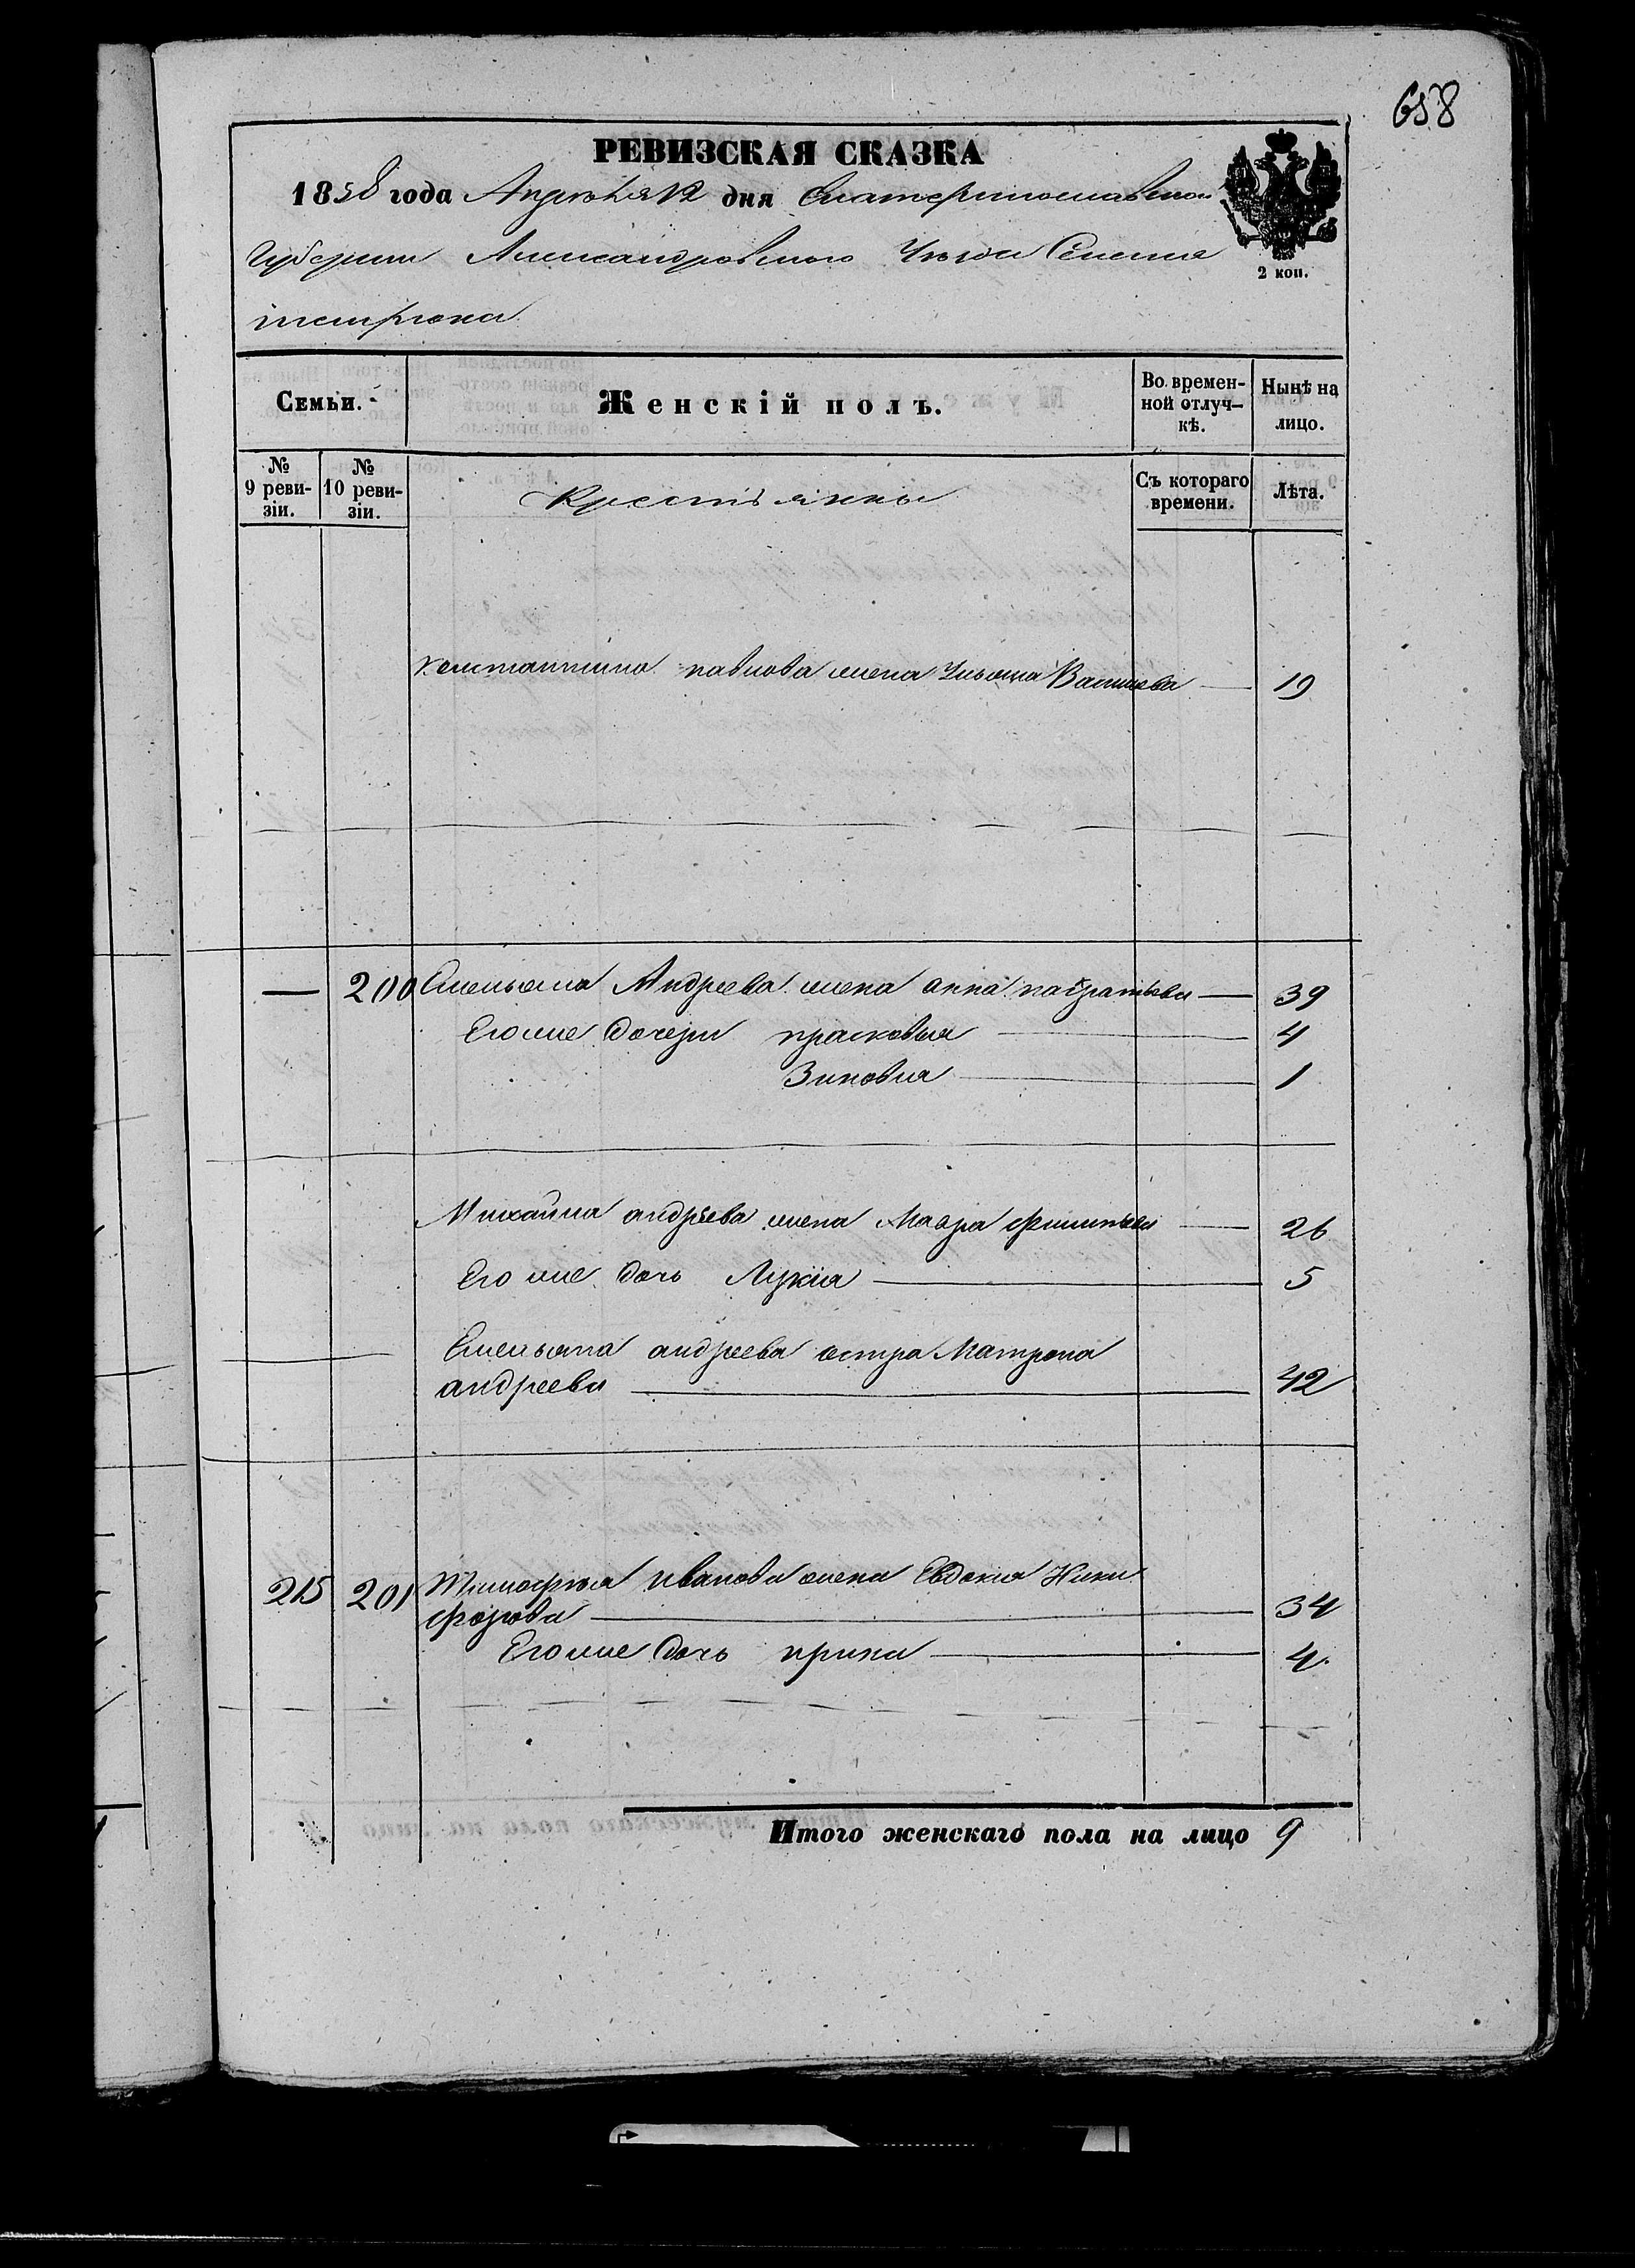 658
РЕВИЗСКАЯ СКАЗКА
1858 года Апреля 12 дня Екатеринославской
Губернии Александровского Уезда Селения
петровка
2 коп.
Семьи.
Женскій полъ.
Во времен-
ной отлуч-
кѣ.
Нынѣ на
лицо.
№
9 реви-
зіи.
№
10 реви-
зіи.
Крестьянки
Съ котораго
времени.
Лѣта.
Константина павлова жена Ульяна Васильева — 19
— 200 Емельяна Андреева жена анна — 39
Его же дочери прасковья — 4
Зиновия — 1
Михайла андреева жена Мавра филипьева — 26
Его же дочь Лукіа — 5
Емельяна андреева сестра Матрона
андреева — 42
215 201 Тимофея иванова жена Евдокия Ники
форова — 34
Его же дочь ирина — 4
Итого женскаго пола на лицо 9